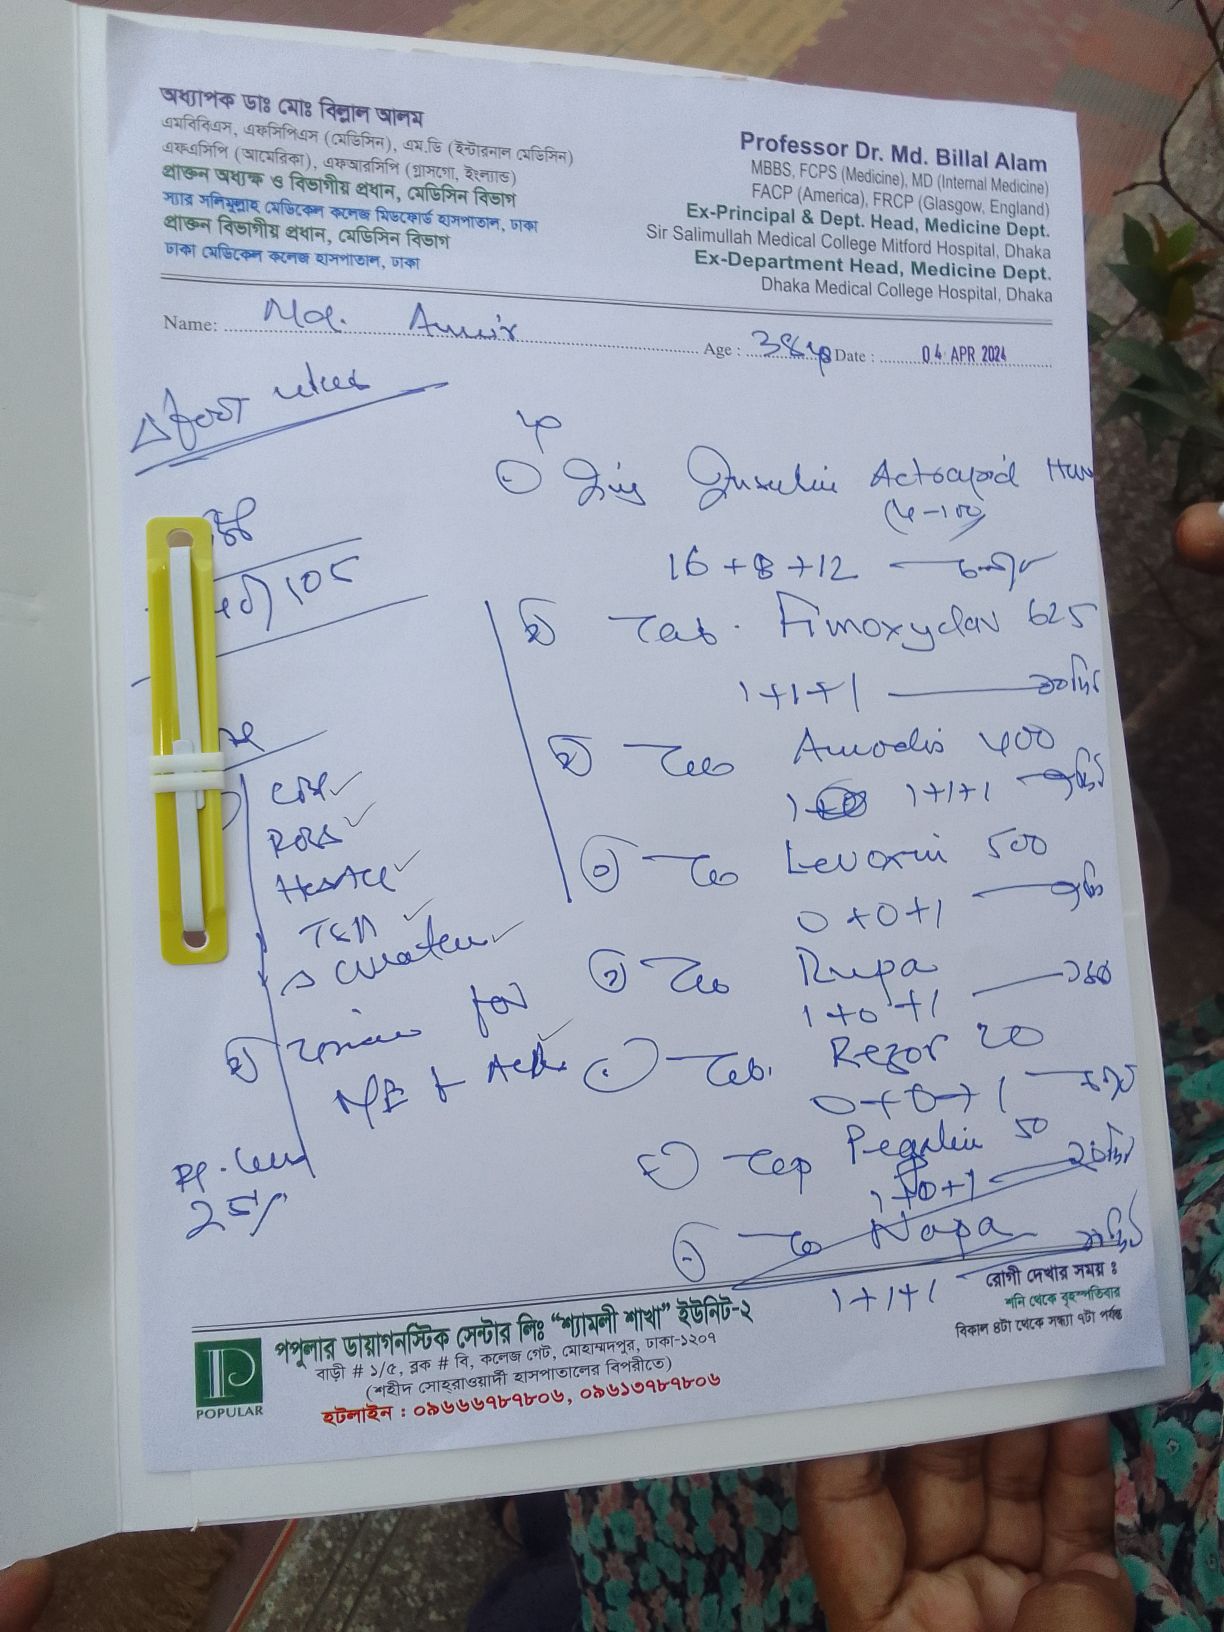 অধ্যাপক ডাঃ মোঃ বিল্লাল আলম
এমবিবিএস, এফসিপিএস (মেডিসিন), এম.ডি (ইন্টারনাল মেডিসিন)
এফএসিপি (আমেরিকা), এফআরসিপি (গ্লাসগো, ইংল্যান্ড)
প্রাক্তন অধ্যক্ষ ও বিভাগীয় প্রধান, মেডিসিন বিভাগ
স্যার সলিমুল্লাহ মেডিকেল কলেজ মিডফোর্ড হাসপাতাল, ঢাকা
প্রাক্তন বিভাগীয় প্রধান, মেডিসিন বিভাগ
ঢাকা মেডিকেল কলেজ হাসপাতাল, ঢাকা
Professor Dr. Md. Billal Alam
MBBS, FCPS (Medicine), MD (Internal Medicine)
FACP (America), FRCP (Glasgow, England)
Ex-Principal & Dept. Head, Medicine Dept.
Sir Salimullah Medical College Mitford Hospital, Dhaka
Ex-Department Head, Medicine Dept.
Dhaka Medical College Hospital, Dhaka
Name: Md. Amir Age : 38 yr Date : 04 APR 2024
Δ foot ulcer
105
CBC
RBS
HbA1c
S creatinine
for
25%
Inj Insulin Actrapid
16 + 8 + 12
Tab. Fimoxyclav 625
1+1+1
Tab Amodis 400
1+1+1
Tab Levoxin 500
0+0+1
Tab Rupa
1+0+1
Tab. Rezor 20
0+0+1
Cap Pegalin 50
1+0+1
Tab Napa
1+1+1
রোগী দেখার সময় :
শনি থেকে বৃহস্পতিবার
বিকাল ৪টা থেকে সন্ধ্যা ৭টা পর্যন্ত
POPULAR
পপুলার ডায়াগনস্টিক সেন্টার লিঃ “শ্যামলী শাখা” ইউনিট-২
বাড়ী # ১/৫, ব্লক # বি, কলেজ গেট, মোহাম্মদপুর, ঢাকা-১২০৭
(শহীদ সোহরাওয়ার্দী হাসপাতালের বিপরীতে)
হটলাইন : ০৯৬৬৬৭৮৭৮০৬, ০৯৬১৩৭৮৭৮০৬